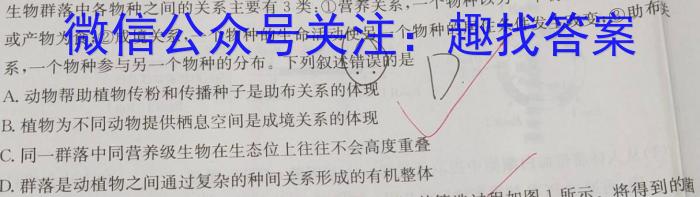 生物群落中各物种之间的关系主要有3类:①营养关系,一个物种以另一个
微信公众号关注:趣找答案
或产物为 ②成境关系,一个物种的生命活动使另一个物种的 发 改变 ③助布关
系,一个物种参与另一个物种的分布。下列叙述错误的是
D
A. 动物帮助植物传粉和传播种子是助布关系的体现
B. 植物为不同动物提供栖息空间是成境关系的体现
C. 同一群落中同营养级生物在生态位上往往不会高度重叠
D. 群落是动植物之间通过复杂的种间关系形成的有机整体
程如图1所示,将得到的